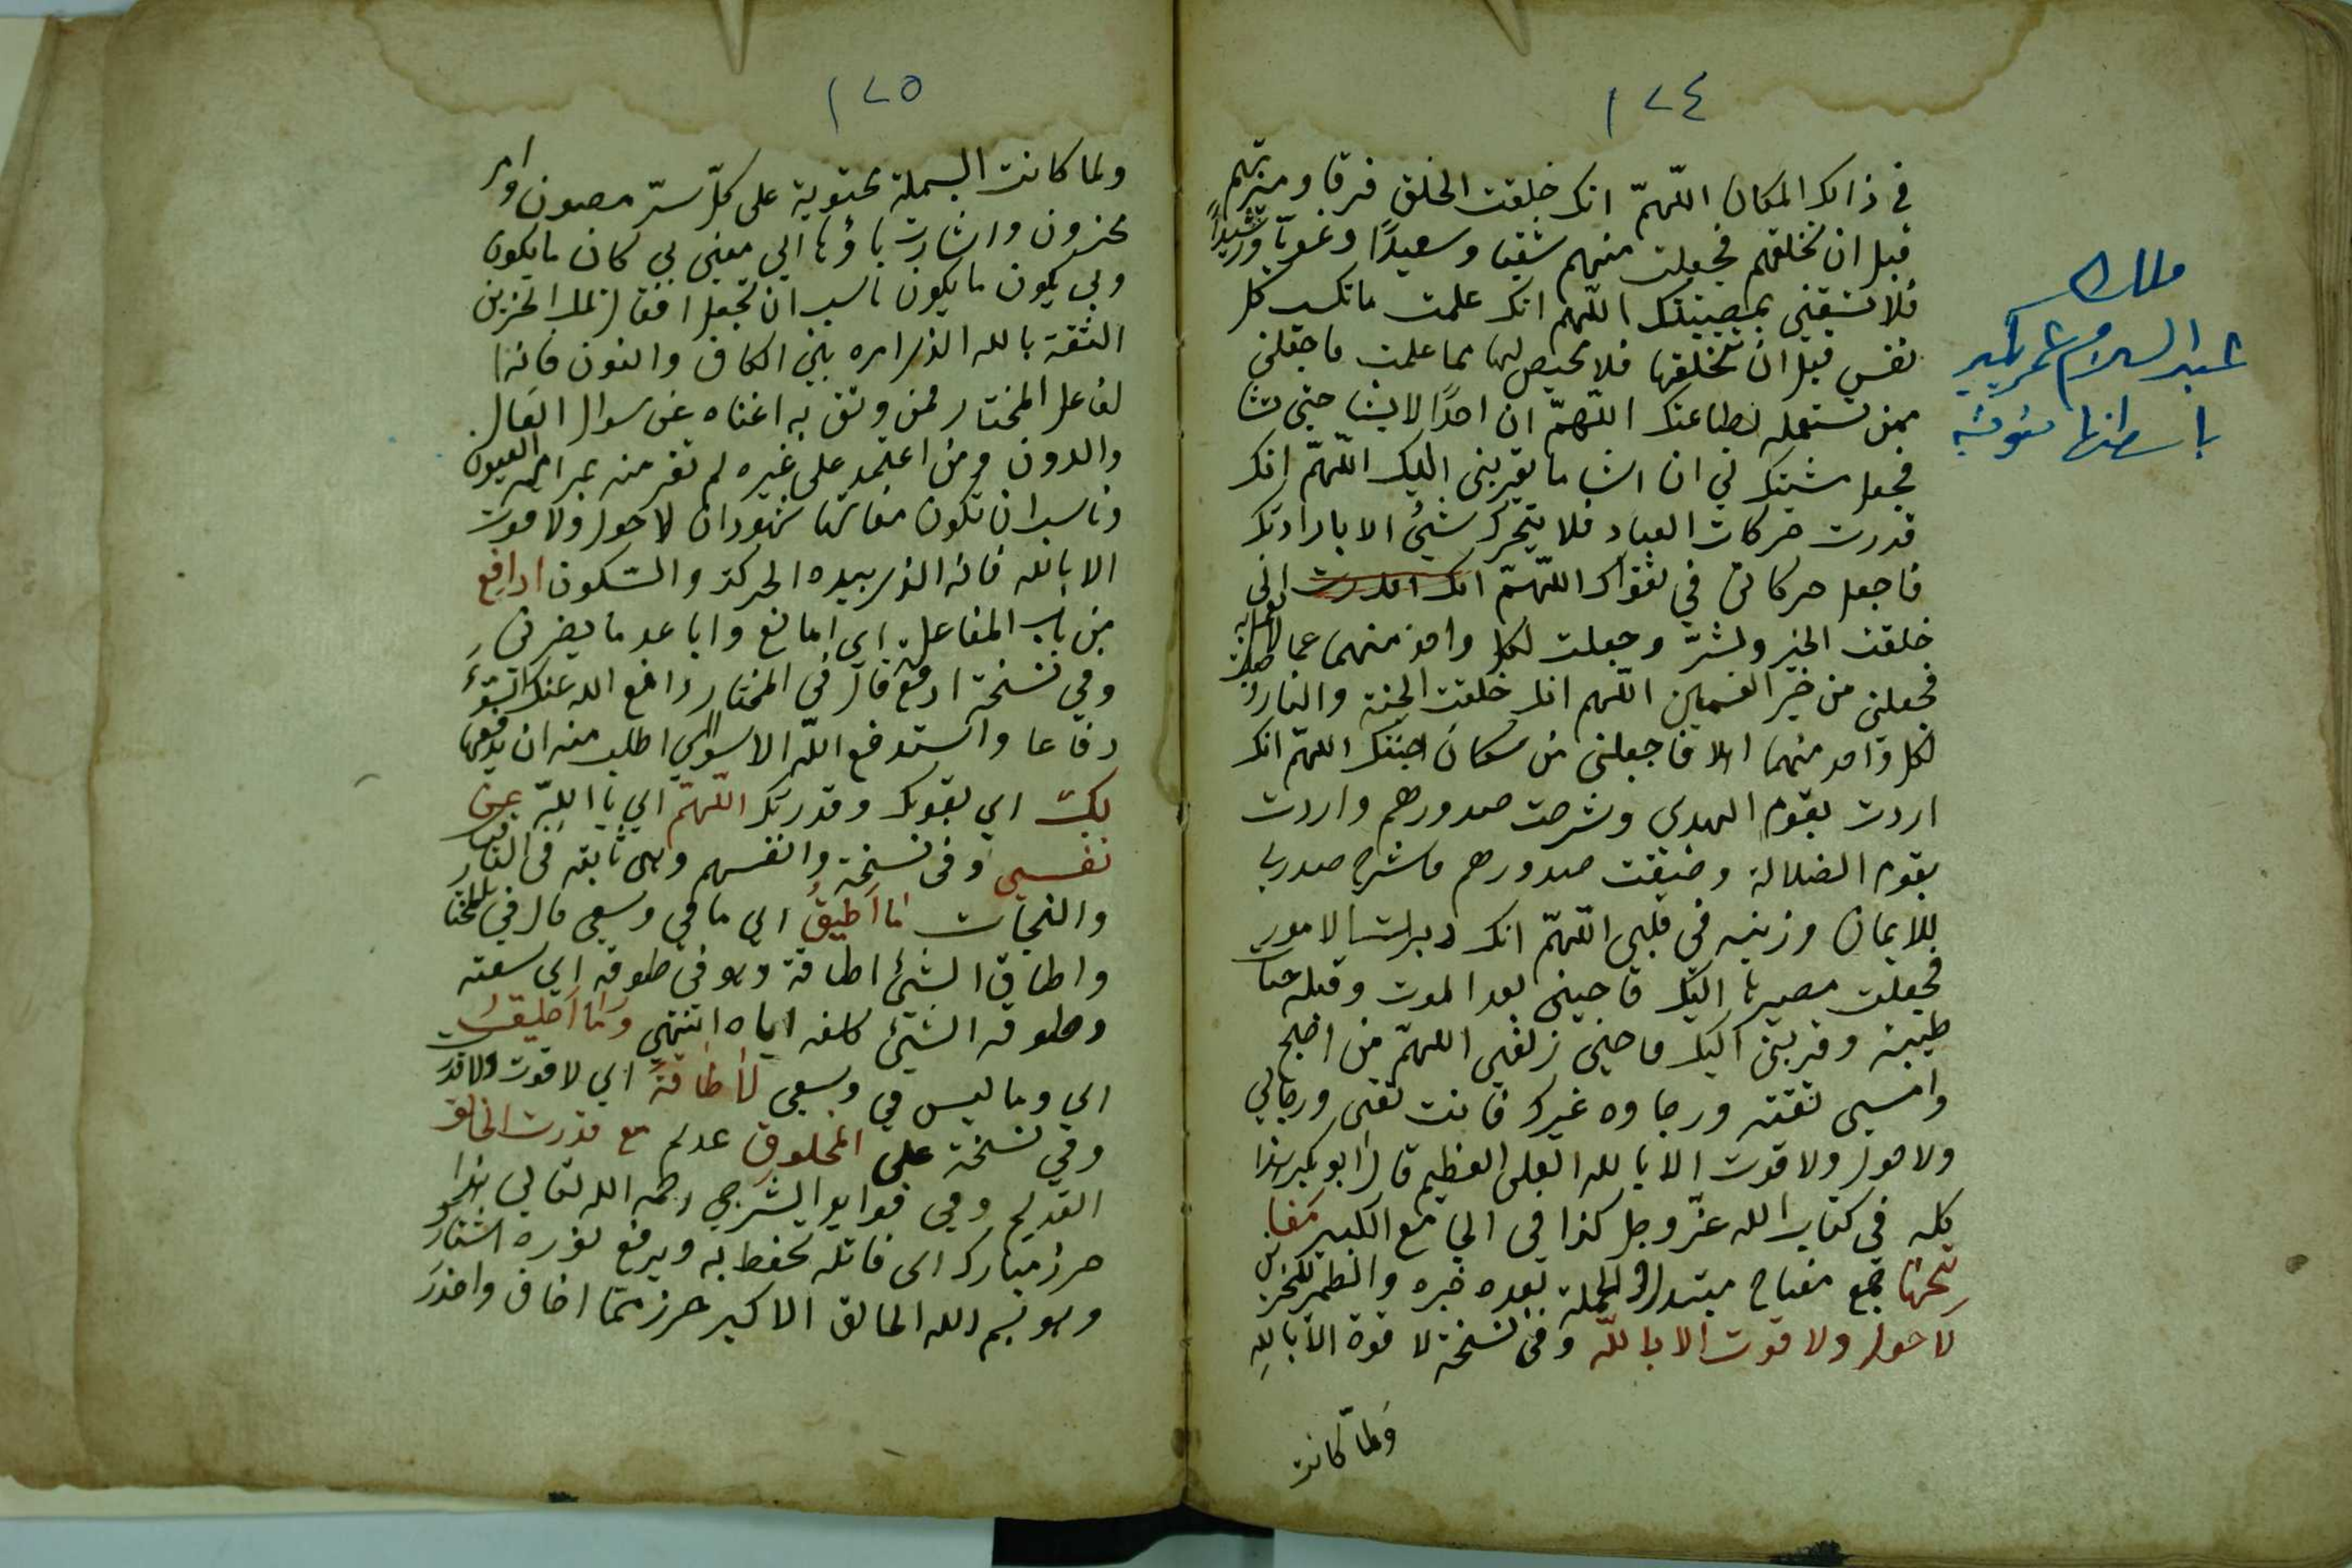 ١٧٤
في ذالك المكان اللهمّ انك خلقت الخلق فرقا وميزتهم
قبل ان تخلقهم فجعلت منهم شقيا وسعيدًا وغويّا ورشيدًا
فلا تشقني بمعصيتك اللهم انك علمت ما تكسب كل
نفس قبل ان تخلقها فلا محيص لها مما علمت فاجعلني
ممن تستعمله بطاعتك اللهمّ ان احدًا لا يشا حتى تشا
فجعل مشيتك لي ان اشا ما يقربني اليك اللهمّ انك
قدرت حركات العباد فلا يتحرك شيئ الا بارادتك
فاجعل حركاتي في تقواك اللهمّ انك
خلقت الخير ولشرّ وجعلت لكل واحد منهما عما
فجعلني من خير القسمين اللهم انك خلقت الجنة والنار
لكل واحد منهما اهلا فاجعلني من سكان جنتك اللهمّ انك
اردت بقوم الهدى وشرحت صدورهم واردت
بقوم الضلالة وضيقت صدورهم فاشرح صدري
للايمان وزينه في قلبي اللهمّ انك دبرت الامور
فجعلت مصيرها اليك فاحيني بعد الموت وقبله حيات
طيبة وقربني اليك فاحيني زلفى اللهمّ من اصبح
وامسى ثقته ورجاوه غيرك فانت ثقتي ورجائي
ولا حول ولا قوت الا بالله العلي العظيم قال ابو بكر هذا
كله في كتاب الله عزّ وجل كذا في الي مع الكبير مفا
تحها جمع مفتاح مبتدا والجملة بعده خبره والظمير للخزين
لا حول ولا قوت الا بالله وفي نسخة لا قوة الا باللهِ
ولمّا كانت
ملك
عبد السلام
١٧٥
ولما كانت البسملة محتوية على كلّ سرّ مصون وامر
مخزون واشارت باؤها الي معني بي كان ما يكون
وبي يكون ما يكون ناسب ان تجعل اقفال تلك الخزين
الثقة بالله الذي امره بين الكاف والنون فانها
لفاعل المختار فمن وثق به اغناه عن سوال العال
والدون ومن اعتمد على غيره لم تغر منه العيون
وناسب ان تكون مفاتها شهود ان لا حول ولا قوت
الا بالله فانه الذي بيده الحركة والسّكون ادافع
من باب المفاعلة اي امانع واباعد ما يضرني
وفي نسخة ادفع قال في المختار دافع الله عنك السّوء
دفاعا واستدفع اللّه الاسواي اطلب منه ان يدفعها
بك اي بقوتك وقدرتك اللّهمّ اي يا اللّه عن
نفسي وفي نسخة وانفسهم وهي ثابته في
والنجات ما اطيقُ اي ما في وسعي قال في المختار
واطاق الشيئ اطاقة وهو في طوقه اي سعته
وطوقه الشيئ كلفه اياه انتهي وما لا اطيق
اي وما ليس في وسعي لا طاقةَ اي لا قوت ولا قدر
وفي نسخة على المخلوق عدم مع قدرت الخالق
القديم وفي فوايد الشرجي رحمه الله تعالي هذا
حرز مبارك اي قائله يحفظ به ويرفع
وهو بسم الله الخالق الاكبر حرز ممّا اخاف واحذر